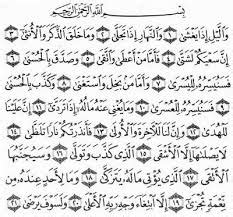 بِسْمِ اللَّهِ الرَّحْمَٰنِ الرَّحِيمِ
وَالَّيْلِ إِذَا يَغْشَىٰ ١ وَالنَّهَارِ إِذَا تَجَلَّىٰ ٢ وَمَا خَلَقَ الذَّكَرَ وَالْأُنثَىٰ ٣
إِنَّ سَعْيَكُمْ لَشَتَّىٰ ٤ فَأَمَّا مَنْ أَعْطَىٰ وَاتَّقَىٰ ٥ وَصَدَّقَ بِالْحُسْنَىٰ ٦
فَسَنُيَسِّرُهُ لِلْيُسْرَىٰ ٧ وَأَمَّا مَنۢ بَخِلَ وَاسْتَغْنَىٰ ٨ وَكَذَّبَ بِالْحُسْنَىٰ ٩
فَسَنُيَسِّرُهُ لِلْعُسْرَىٰ ١٠ وَمَا يُغْنِي عَنْهُ مَالُهُ إِذَا تَرَدَّىٰ ١١ إِنَّ عَلَيْنَا
لَلْهُدَىٰ ١٢ وَإِنَّ لَنَا لَلْآخِرَةَ وَالْأُولَىٰ ١٣ فَأَنذَرْتُكُمْ نَارًا تَلَظَّىٰ ١٤
لَا يَصْلَىٰهَا إِلَّا الْأَشْقَى ١٥ الَّذِي كَذَّبَ وَتَوَلَّىٰ ١٦ وَسَيُجَنَّبُهَا
الْأَتْقَى ١٧ الَّذِي يُؤْتِي مَالَهُ يَتَزَكَّىٰ ١٨ وَمَا لِأَحَدٍ عِندَهُ مِن
نِّعْمَةٍ تُجْزَىٰ ١٩ إِلَّا ابْتِغَاءَ وَجْهِ رَبِّهِ الْأَعْلَىٰ ٢٠ وَلَسَوْفَ يَرْضَىٰ ٢١